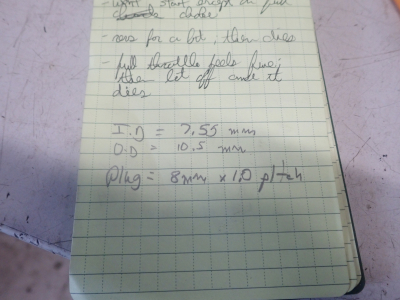 - won't start, except on full
choke
- revs for a bit, then dies
- full throttle feels fine;
then let off and it
dies
I.D = 7.55 mm
O.D = 10.5 mm
Plug = 8mm x 1.0 pitch